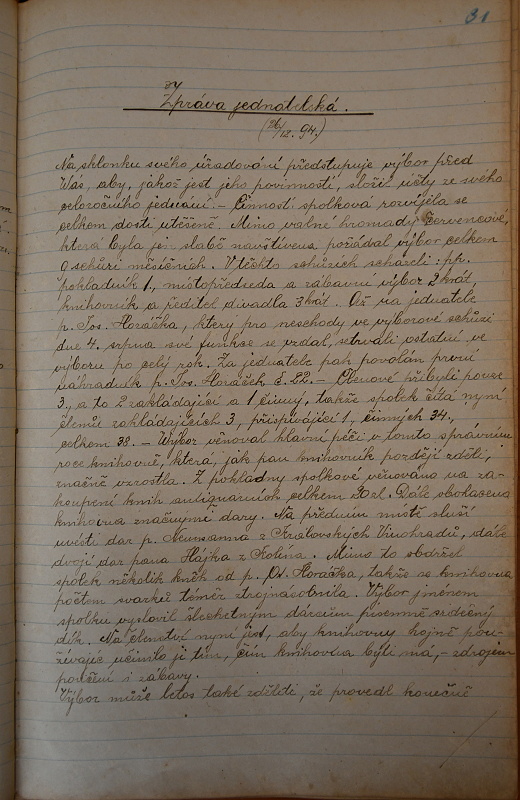 31
Zpráva jednatelská.
(26/12. 94.)
Na sklonku svého úřadování předstupuje výbor před
Vás, aby, jakož jest jeho povinností, složil účty ze svého
celoročního jednání. – Činnost spolková rozvíjela se
celkem dosti utěšeně. Mimo valné hromady červencové,
která byla jen slabě navštívena pořádal výbor celkem
9 schůzí měsíčních. V těchto schůzích scházeli: pp.
pokladník 1, místopředseda a zábavní výbor 2krát,
knihovník a ředitel divadla 3krát. Až na jednatele
p. Jos. Horáčka, který pro neshody ve výborové schůzi
dne 4. srpna své funkce se vzdal, setrvali ostatní ve
výboru po celý rok. Za jednatele pak povolán první
náhradník p. Jos. Horáček č. 22. – Členové přibyli pouze
3, a to 2 zakládající a 1 činný, takže spolek čítá nyní
členů zakládajících 3, přispívající 1, činných 34,
celkem 38. – Výbor věnoval hlavní péči v tomto správním
roce knihovně, která, jak pan knihovník později sdělí,
značně vzrostla. Z pokladny spolkové věnováno na za-
koupení knih antiquárních celkem 20 zl. Dále obohacena
knihovna značnými dary. Na předním místě sluší
uvésti dar p. Neumanna z Královských Vinohradů, dále
dvojí dar pana Hájka z Kolína. Mimo to obdržel
spolek několik kněh od p. Horáčka, takže se knihovna
počtem svazků téměř ztrojnásobnila. Výbor jménem
spolku vyslovil šlechetným dárcům písemně srdečný
dík. Na členstvu nyní jest, aby knihovny hojně pou-
žívajíc učinilo ji tím, čím knihovna býti má, – zdrojem
poučení i zábavy.
Výbor může letos také sděliti, že provedl konečně